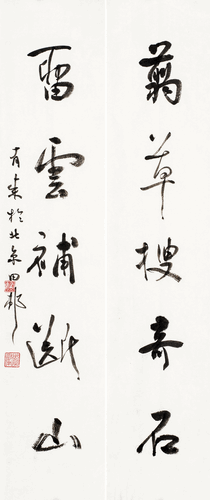 翦草搜奇石
畱雲補斷山
有來於北京田邨